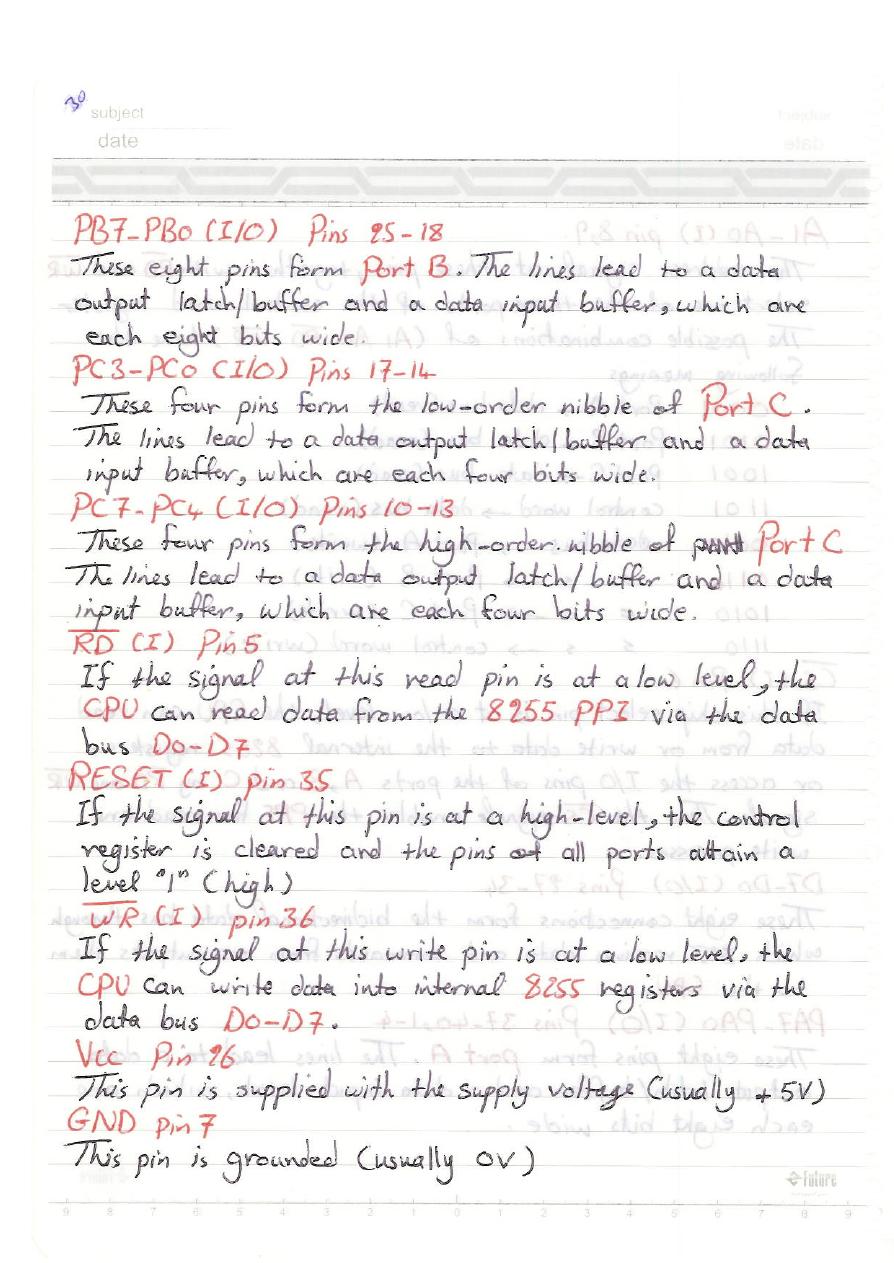 30
subject
date
PB7-PB0 (I/O) Pins 25-18
These eight pins form Port B. The lines lead to a data
output latch/buffer and a data input buffer, which are
each eight bits wide.
PC3-PC0 (I/O) Pins 17-14
These four pins form the low-order nibble of Port C.
The lines lead to a data output latch/buffer and a data
input buffer, which are each four bits wide.
PC7-PC4 (I/O) Pins 10-13
These four pins form the high-order nibble of Port C
The lines lead to a data output latch/buffer and a data
input buffer, which are each four bits wide.
R̅D̅ (I) Pin 5
If the signal at this read pin is at a low level, the
CPU can read data from the 8255 PPI via the data
bus D0-D7
RESET (I) pin 35
If the signal at this pin is at a high-level, the control
register is cleared and the pins of all ports attain a
level "1" (high)
W̅R̅ (I) pin 36
If the signal at this write pin is at a low level, the
CPU can write data into internal 8255 registers via the
data bus D0-D7.
Vcc Pin 26
This pin is supplied with the supply voltage (usually + 5V)
GND pin 7
This pin is grounded (usually 0V)
Future
9 8 7 6 5 4 3 2 1 0 1 2 3 4 5 6 7 8 9